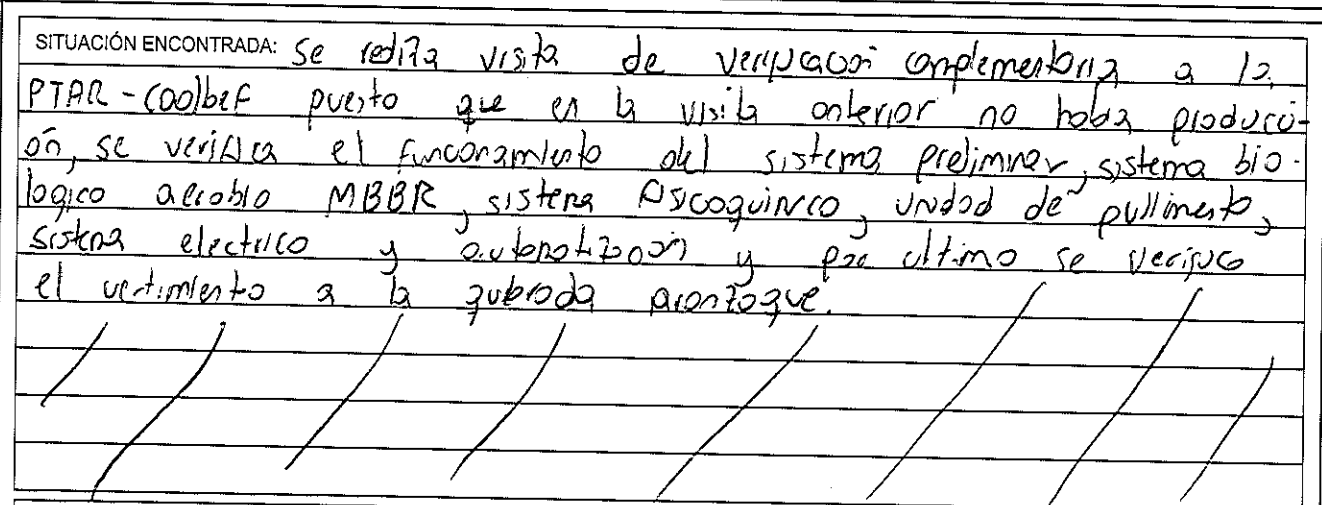 SITUACIÓN ENCONTRADA: Se realiza visita de verificación complementaria a la
PTAR - Coolbef puesto que en la visita anterior no había producci-
ón, se verifica el funcionamiento del sistema preliminar, sistema bio-
logico aerobio MBBR, sistema fisicoquimico, unidad de pulimento,
sistema electrico y automatización y por ultimo se verifico
el vertimiento a la quebrada